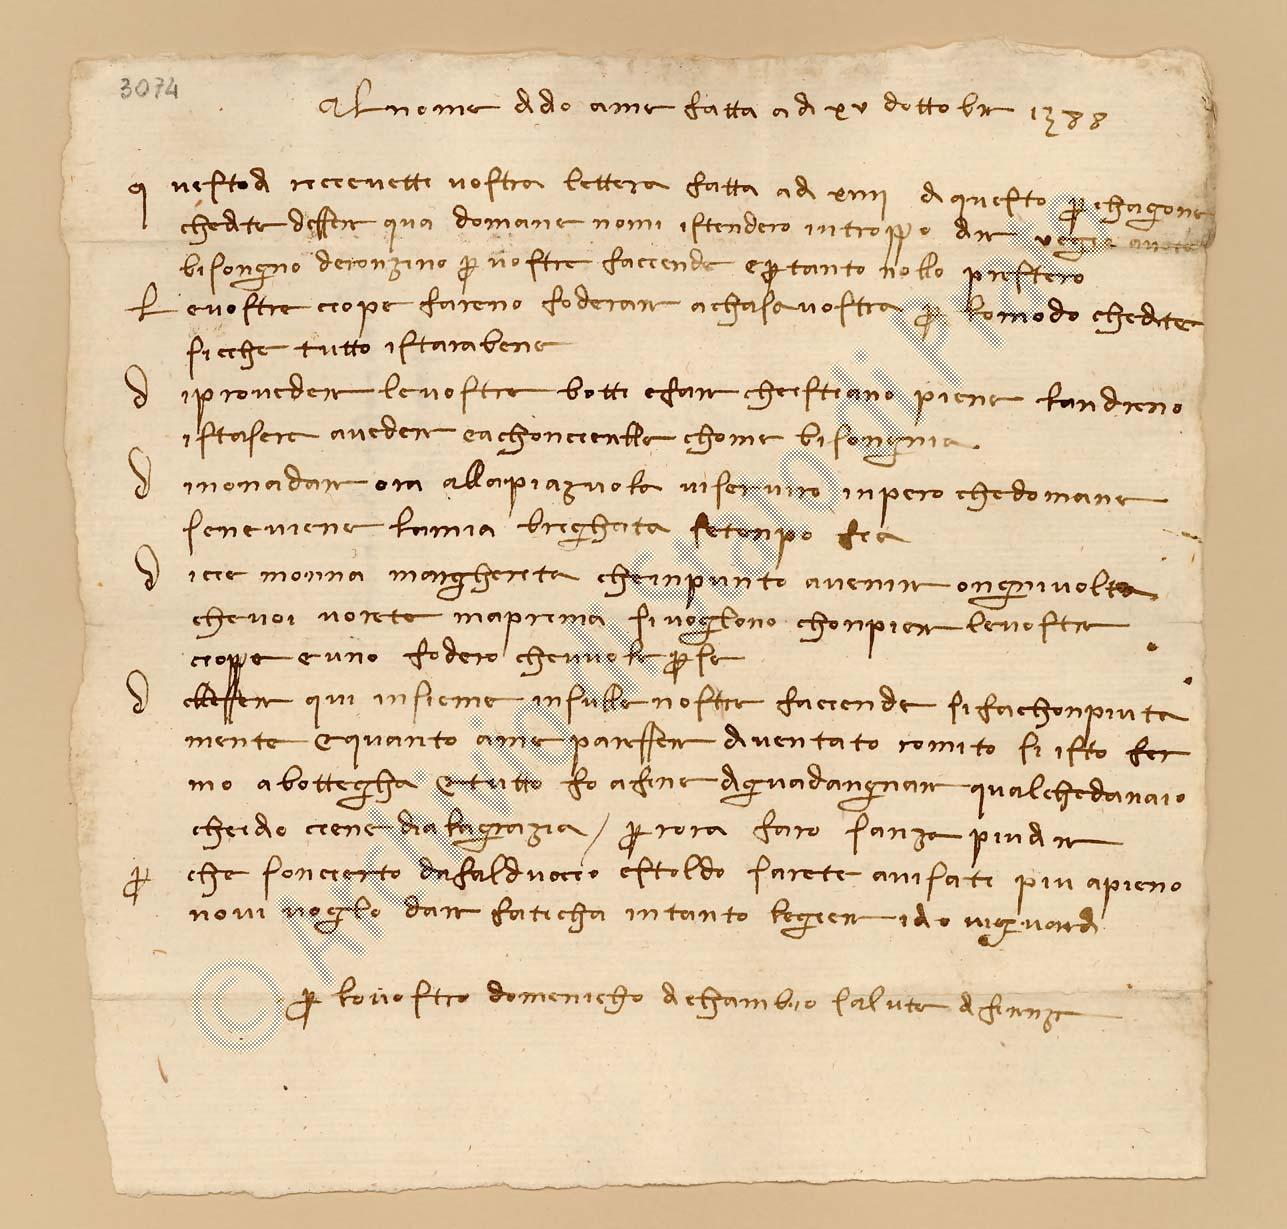 3074
Al nome di dio ame fatta adi xv dottobr 1388
questodi riccievetti vostra lettera fatta adi xiiii di questo p chagone
chedite desser qua domane nomi istendero introppo dir vegio avete
bisongno deronzino p vostre faciende e p tanto nollo prestero
Le vostre ciope fareno foderar achasa vostra p lomodo chedite
sicche tutto istarabene
di proveder levostre botti efar cheistiano piene landreno
istasera aveder eachoncierelle chome bisongnia.
di nonadar ora allapiazuola viserviro inpero chedomane
seneviene lamia breghata setenpo fia
dicie monna margherita cheinpunto avenir ongnivolta
chevoi vorete maprima sivogliono chonpier levostre
cioppe e uno fodero chevuole p se
dellesser qui insieme insulle nostre faciende si fachonpiuta
mente e quanto ame paresser diventato romito si isto fer
mo abottegha e tutto fo afine diguadangnar qualchedanaio
cheidio ciene dia lagrazia / p rora faro sanza piu dir
p che soncierto dafalduccio estoldo sarete avisati piu apieno
novi voglo dar faticha intanto legier idio viguardi
p lovostro domenicho di chambio salute di firenze
© Archivio di Stato di Prato